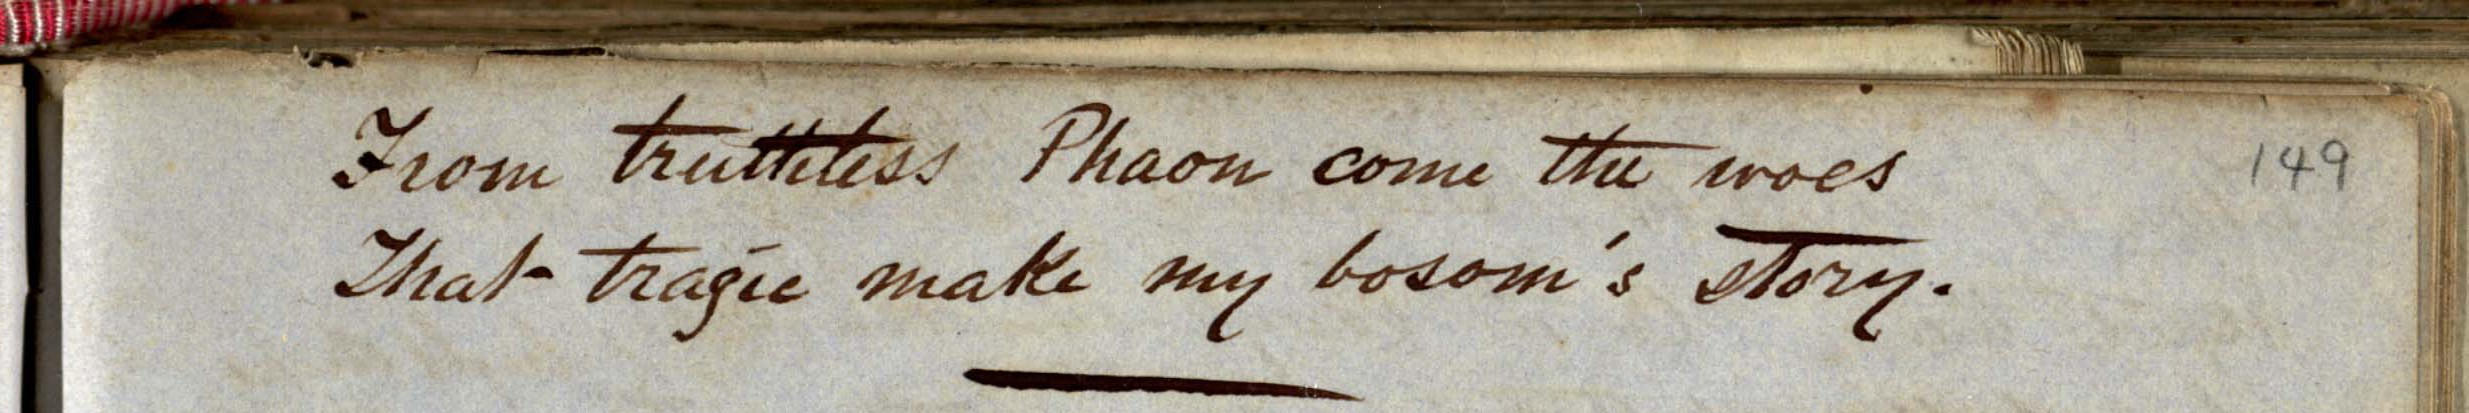 From truthless Phaon come the woes
149
That tragic make my bosom's story.